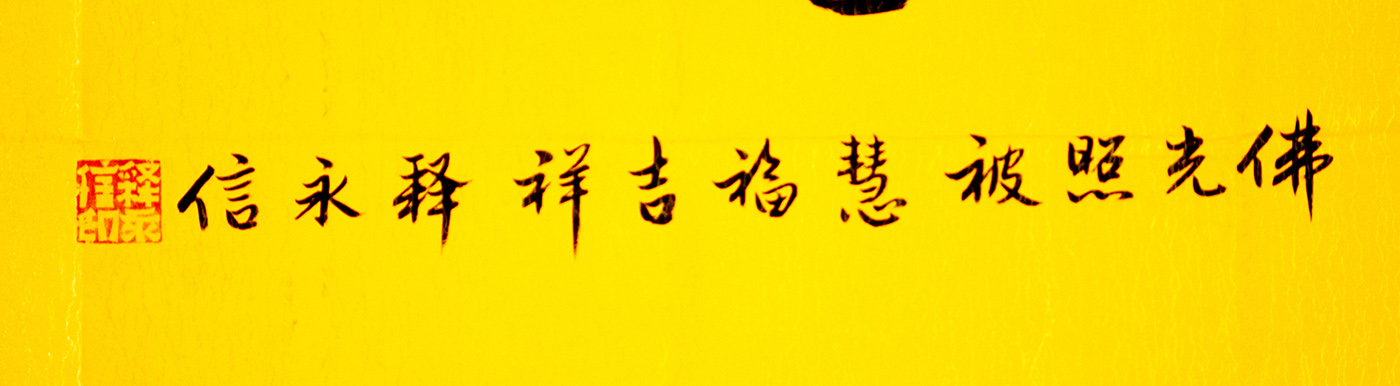 佛光照被慧福吉祥释永信
释永信印